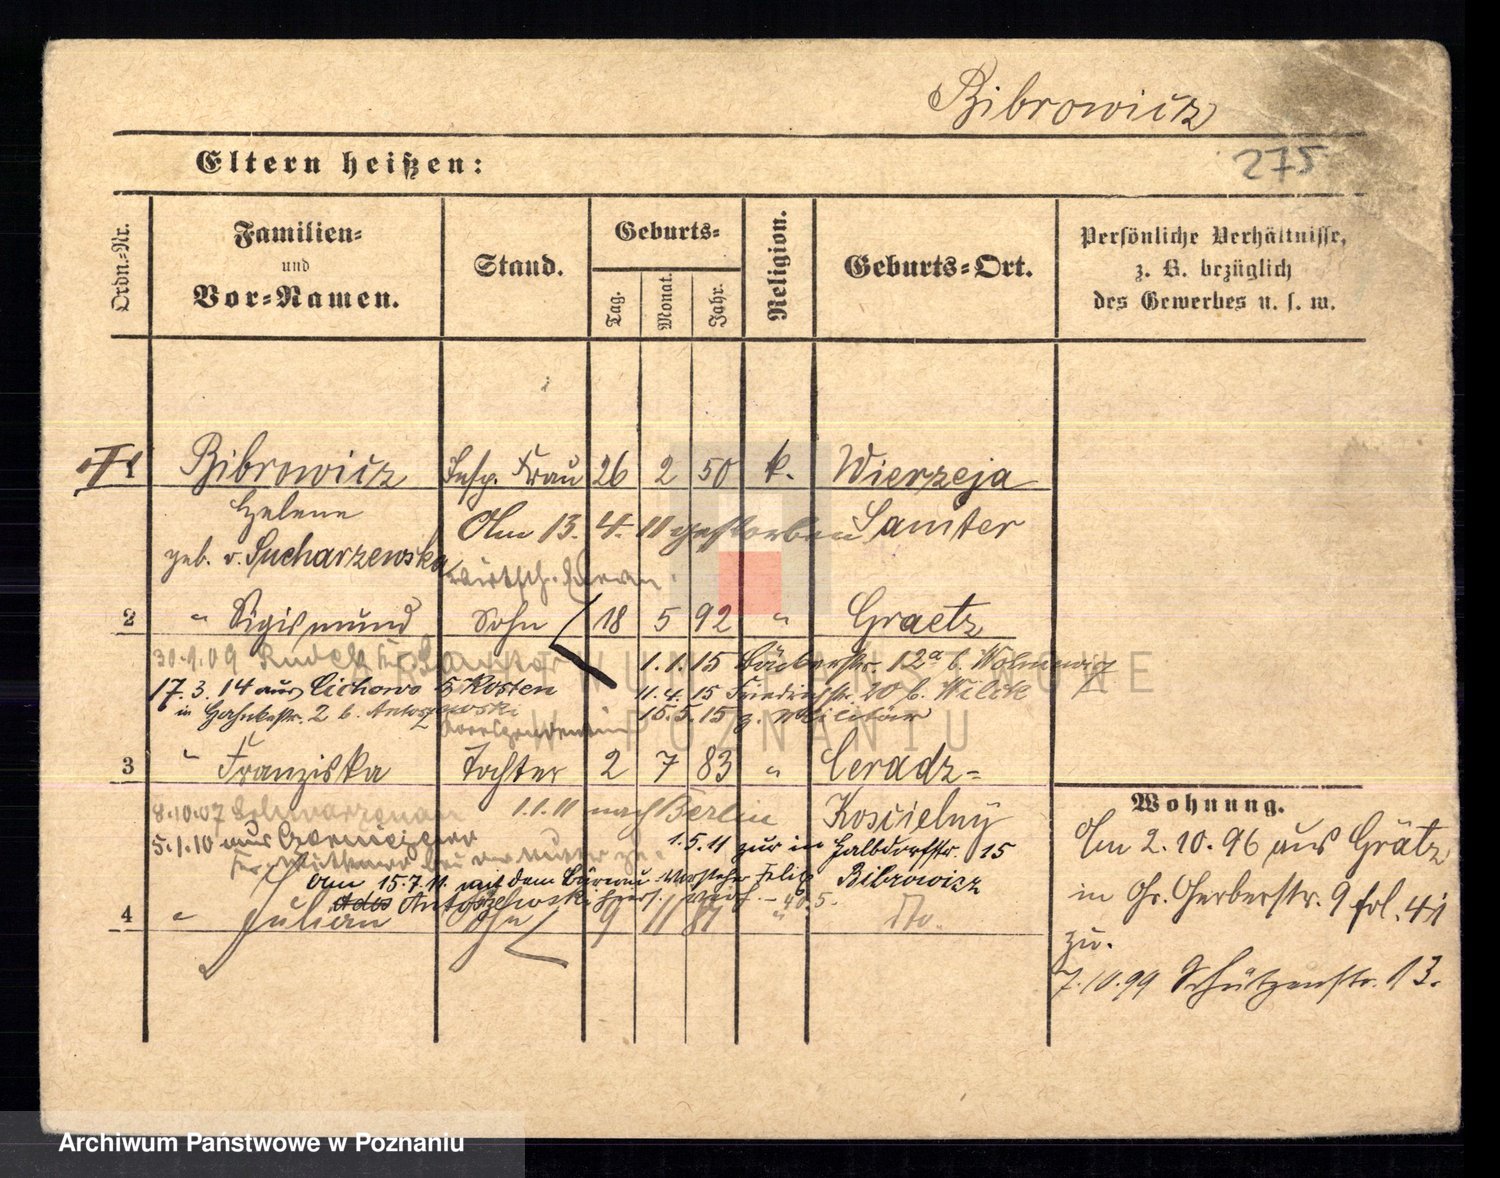 Bibrowicz
275
Eltern heißen:
Ordn.-Nr.
Familien-
und
Vor-Namen.
Stand.
Geburts-
Tag.
Monat.
Jahr.
Religion.
Geburts-Ort.
Persönliche Verhältnisse,
z. B. bezüglich
des Gewerbes u. s. w.
1 Bibrowicz Insp. Frau 26 2 50 k. Wierzeja
Helene Am 13. 4. 11 gestorben Samter
geb. v. Sucharzewska
2 " Sigismund Sohn 18 5 92 " Graetz
30.1.09
1.1.15 Bäckerstr. 12a b.
17.3.14 aus Cichowo Kosten
11.4.15 Friedrichstr. 20 b. Wilck
in 2 b.
15.5.15 z. Militär
3 " Franziska Tochter 2 7 83 " Ceradz-
8.10.07 1.1.11 nach Berlin Kościelny
5.1.10 aus
1.5.11 zur in Halbdorfstr. 15
Am 15.7.11 mit dem Büreau-Vorsteher Felix Bibrowicz
4 " Julian Sohn 9 11 81 " Do.
Wohnung.
Am 2.10.96 aus Grätz
in Gr. Gerberstr. 9 fol. 41
zu.
7.10.99 Schützenstr. 13.
ARCHIWUM PAŃSTWOWE
W POZNANIU
Archiwum Państwowe w Poznaniu